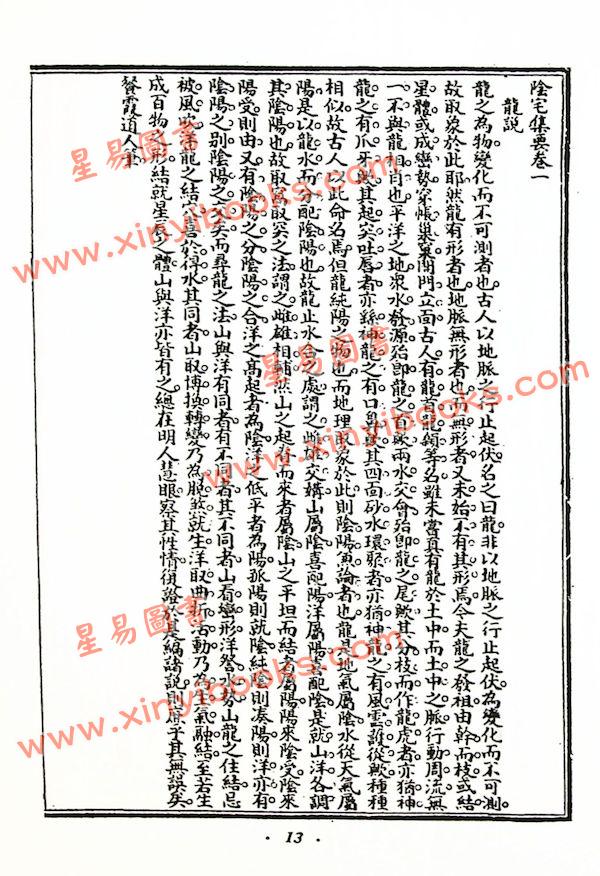 陰宅集要卷一
龍說
龍之為物變化而不可測者也古人以地脈之行止起伏名之曰龍非以地脈之行止起伏為變化而不可測
故取象於此耶然龍有形者也地脈無形者也而無形者又未始不有其形焉今夫龍之發祖由幹而枝或結
星體或成巒勢穿帳過閘門立面古人有龍首龍頷等名雖未嘗真有龍於土中而土中之脈行動周流無
一不與龍相肖也平洋之地眾水發源殆即龍之首歟兩水交會殆即龍之尾歟其分枝而作龍虎者亦猶神
龍之有爪牙歟其起突吐唇者亦猶神龍之有口鼻歟其四面砂水環聚者亦猶神龍之有風雲護從歟種種
相似故古人以此命名焉但龍純陽之物也而地理取象於此則陰陽宜論者也龍是地氣屬陰水從天氣屬
陽是以龍水而分配陰陽也故龍止水合之處謂之雌雄交媾山屬陰喜配陽洋屬陽喜配陰是就山洋各調
其陰陽也故取窩取突之法謂之雌雄相輔然山之起脊而來者屬陰山之平坦而結者屬陽陽來陰受陰來
陽受則由又有陰陽之分陰陽之合洋之高起者為陰洋之低平者為陽孤陽則就陰純陰則湊陽則洋亦有
陰陽之別陰陽之交矣而尋龍之法山與洋有同者有不同者其不同者山看巒形洋祭水勢山龍之住結忌
被風吹洋龍之結穴喜於得水其同者山取博換轉變乃為脫煞就生洋取曲折活動乃為生氣融結至若生
成百物之形結就星辰之體山與洋亦皆有之總在明人慧眼察其性情復證於其編諸說則庶乎其無誤矣
餐霞道人筆
星易圖書
www.xinyibooks.com
星易圖書
www.xinyibooks.com
星易圖書
www.xinyibooks.com
· 13 ·